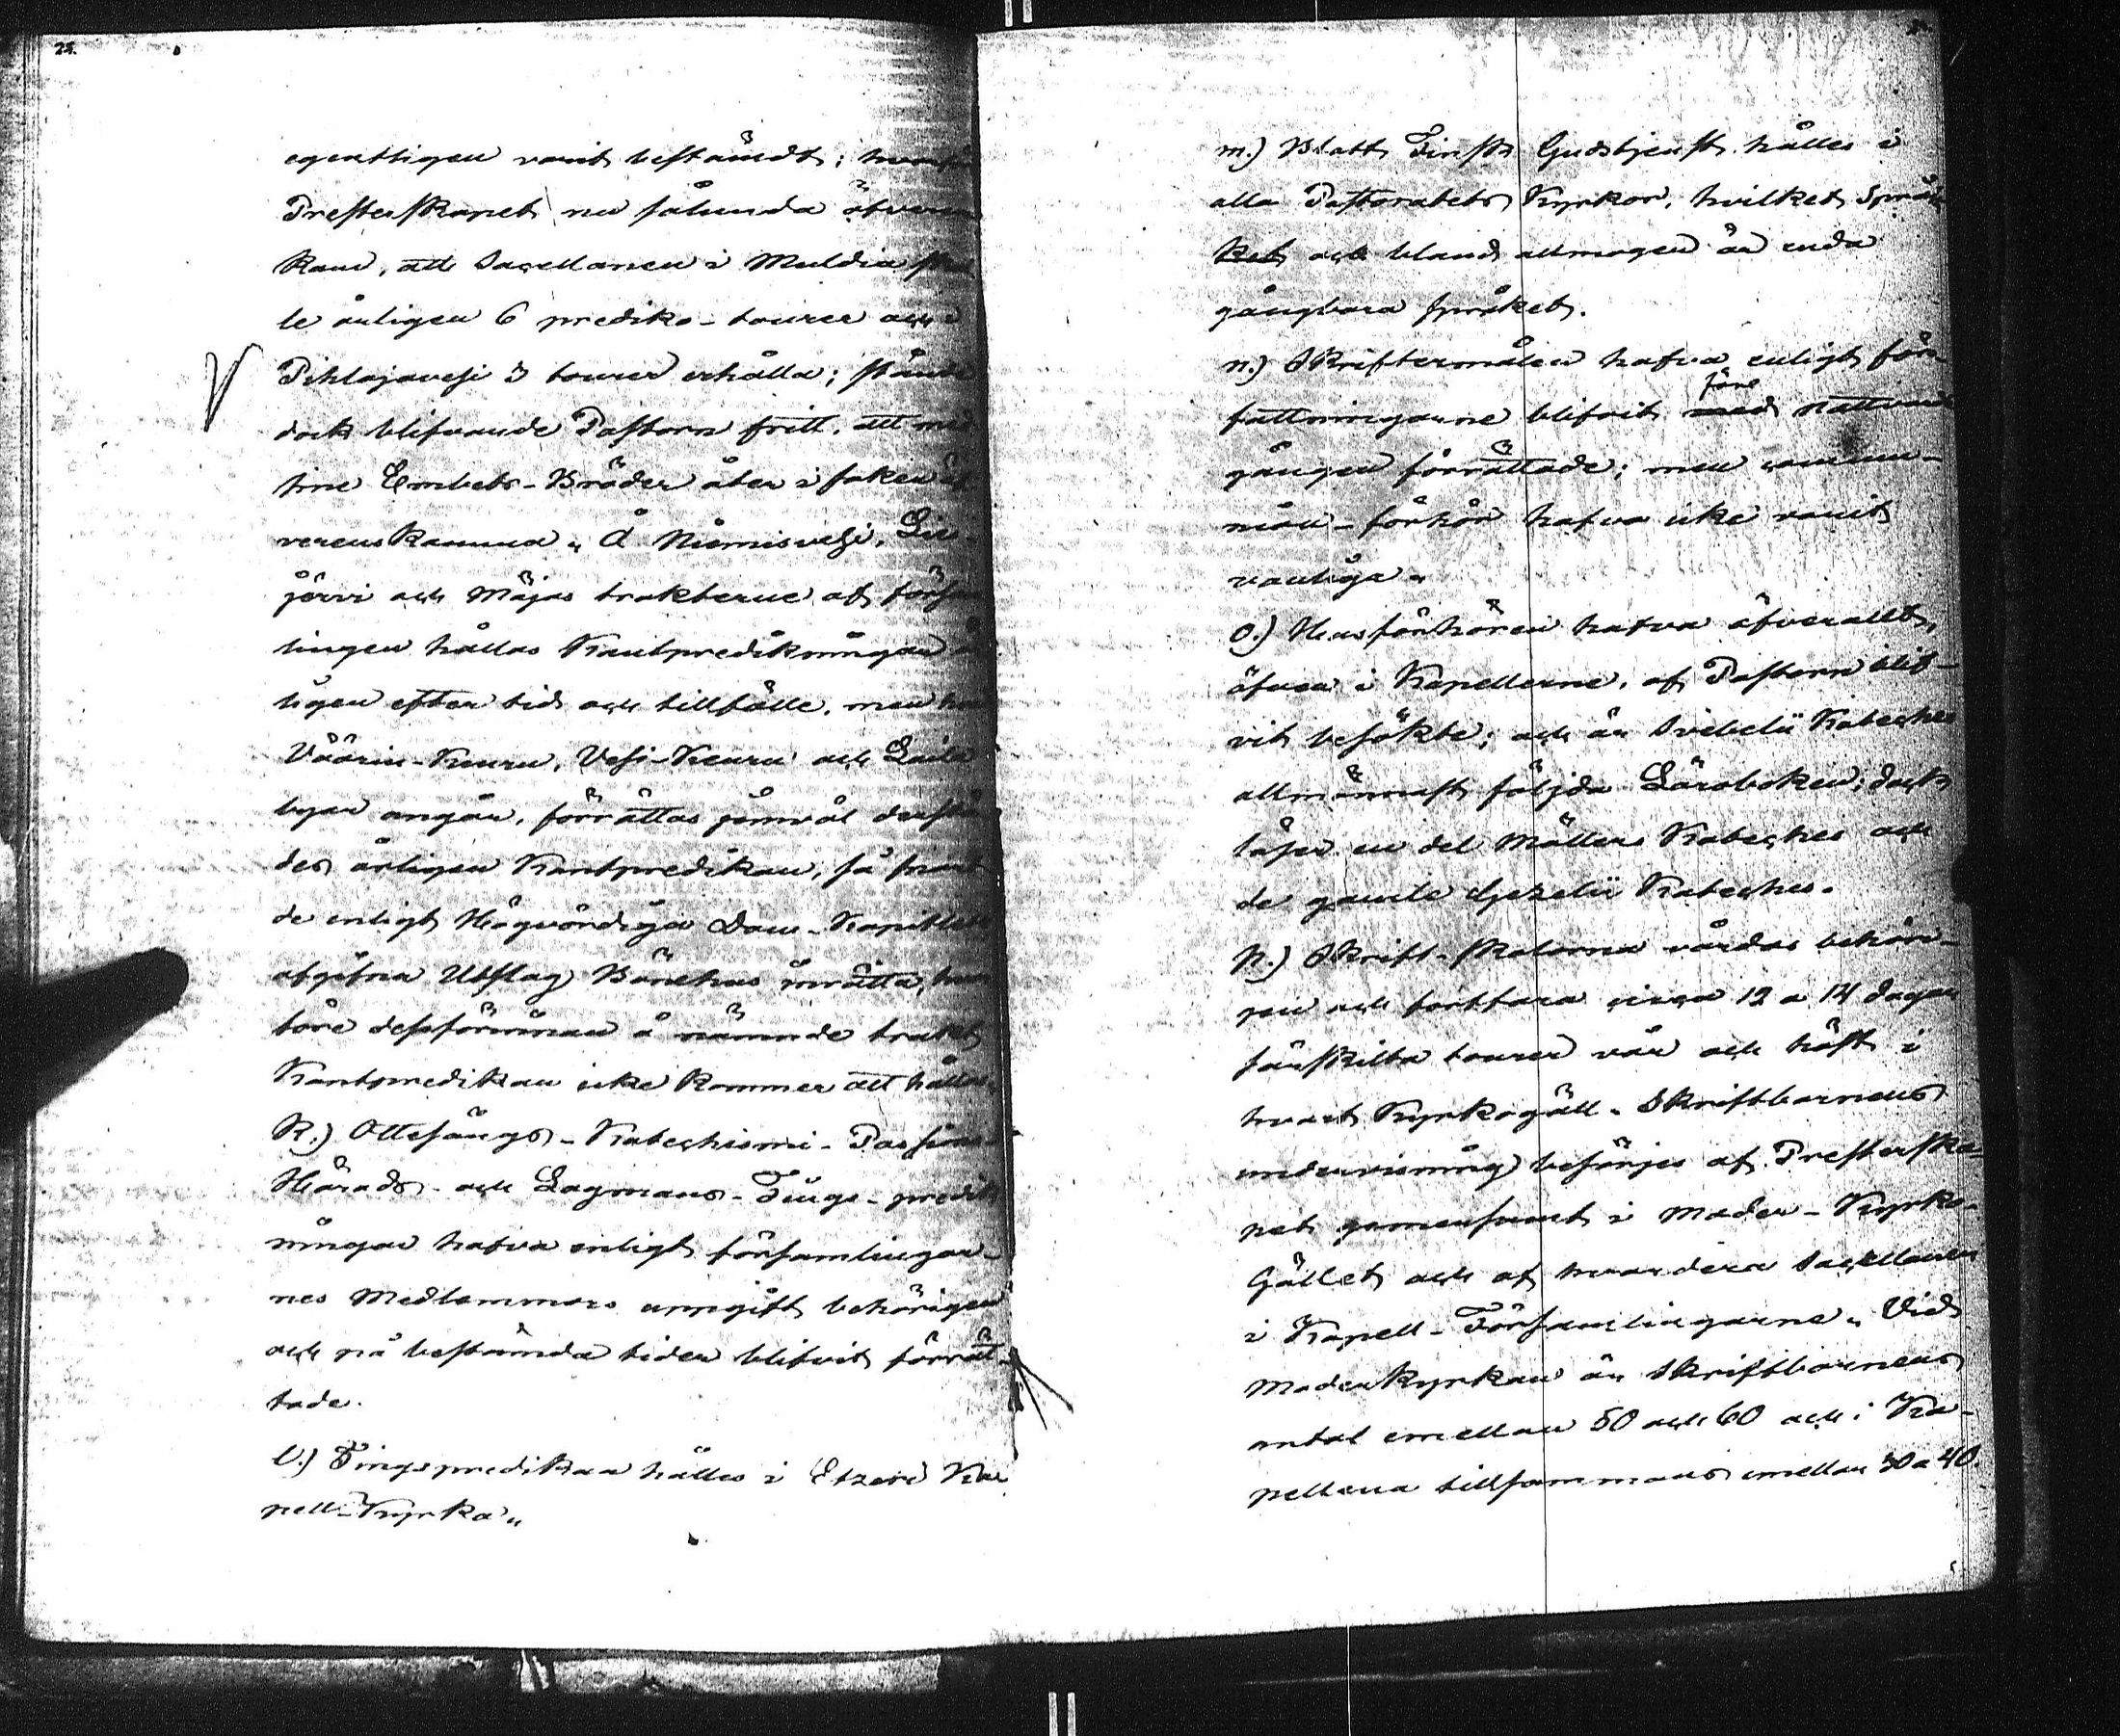 egentligen varit bestämdt;
Presterskapet nu sålunda
kom, att Sacellanen i Muldia
le årligen 6 prediko-tourer och i
Pihlajavesi 3 tourer erhålla;
dock blifvande Pastorn fritt, att med
sine Embets-Bröder åter i saken
verenskomma. Å Niemisvesi,
järvi och Majas trakterne af
lingen hållas Kantpredikningar
ligen efter tid och tillfälle, men
Väärin-Keuru, Vesi-Keuru och
byar angår, förrättas jemväl
des årligen Kantpredikan, så
de enligt Högvördiga Dom-Kapitlets
afgifna Utslag Bönehus inrätta,
före dessförinnan å nämnde trakt
Kantpredikan icke kommer att hållas.
K.) Ottesångs-Katechismi-Passions-
Härads- och Lagmans-Tings-predik
ningar hafva enligt församlingar-
nes Medlemmars uppgift behörigen
och på bestämda tider blifvit förrät-
tade.
l.) Tingspredikan hålles i Etzeri Ka-
pell-Kyrka.
m.) Blott Finsk Gudstjenst hålles i
alla Pastoratets Kyrkor, hvilket Språ-
ket och bland allmogen är enda
gångbara språket.
n.) Skriftermålen hafva enligt för-
fattningarne blifvit med före nattvards
gången förrättade; men commu-
nion-förhör hafva icke varit
vanliga.
o.) Husförhören hafva öfverallt,
äfven i Kapellerne, af Pastorn blif-
vit besökte; och är Svebelii Kateches
allmännast följda Läroboken; dock
läser en del Möllers Kateches och
de gamle Gezelii Kateches.
p.) Skrift-skolorna vårdas behöri-
gen och fortfara circa 12 a 14 dagar
särskilta tourer vår och höst i
hvart Kyrkogäll. Skriftbarnens
undervisning besörjes af Presterska-
pet gemensamt i Moder-Kyrko-
Gället och af hvardera Sacellanen
i Kapell-Församlingarne. Vid
Moderkyrkan är Skriftbarnens
antal emellan 50 och 60 och i Ka-
pellerna tillsammans emellan 30 a 40.